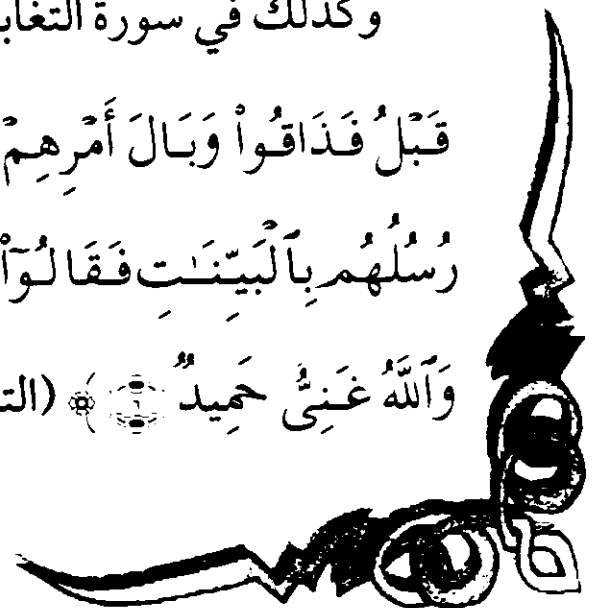 وكذلك في سورة التغاب
قَبْلُ فَذَاقُوا۟ وَبَالَ أَمْرِهِمْ
رُسُلُهُم بِٱلْبَيِّنَـٰتِ فَقَالُوٓا۟
وَٱللَّهُ غَنِىٌّ حَمِيدٌ ٦ ﴾ (الت